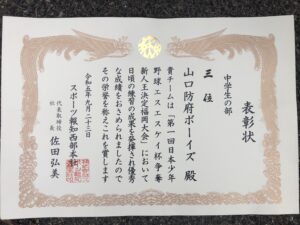 表彰状
中学生の部
三位
山口防府ボーイズ 殿
貴チームは「第一回日本少年
野球エスエスケイ杯争奪
新人王決定福岡大会」において
日頃の練習の成果を発揮され優秀
な成績をおさめられましたので
その栄誉を称えこれを賞します
令和五年九月二十三日
スポーツ報知西部本社
代表取締役
社長 佐田弘美